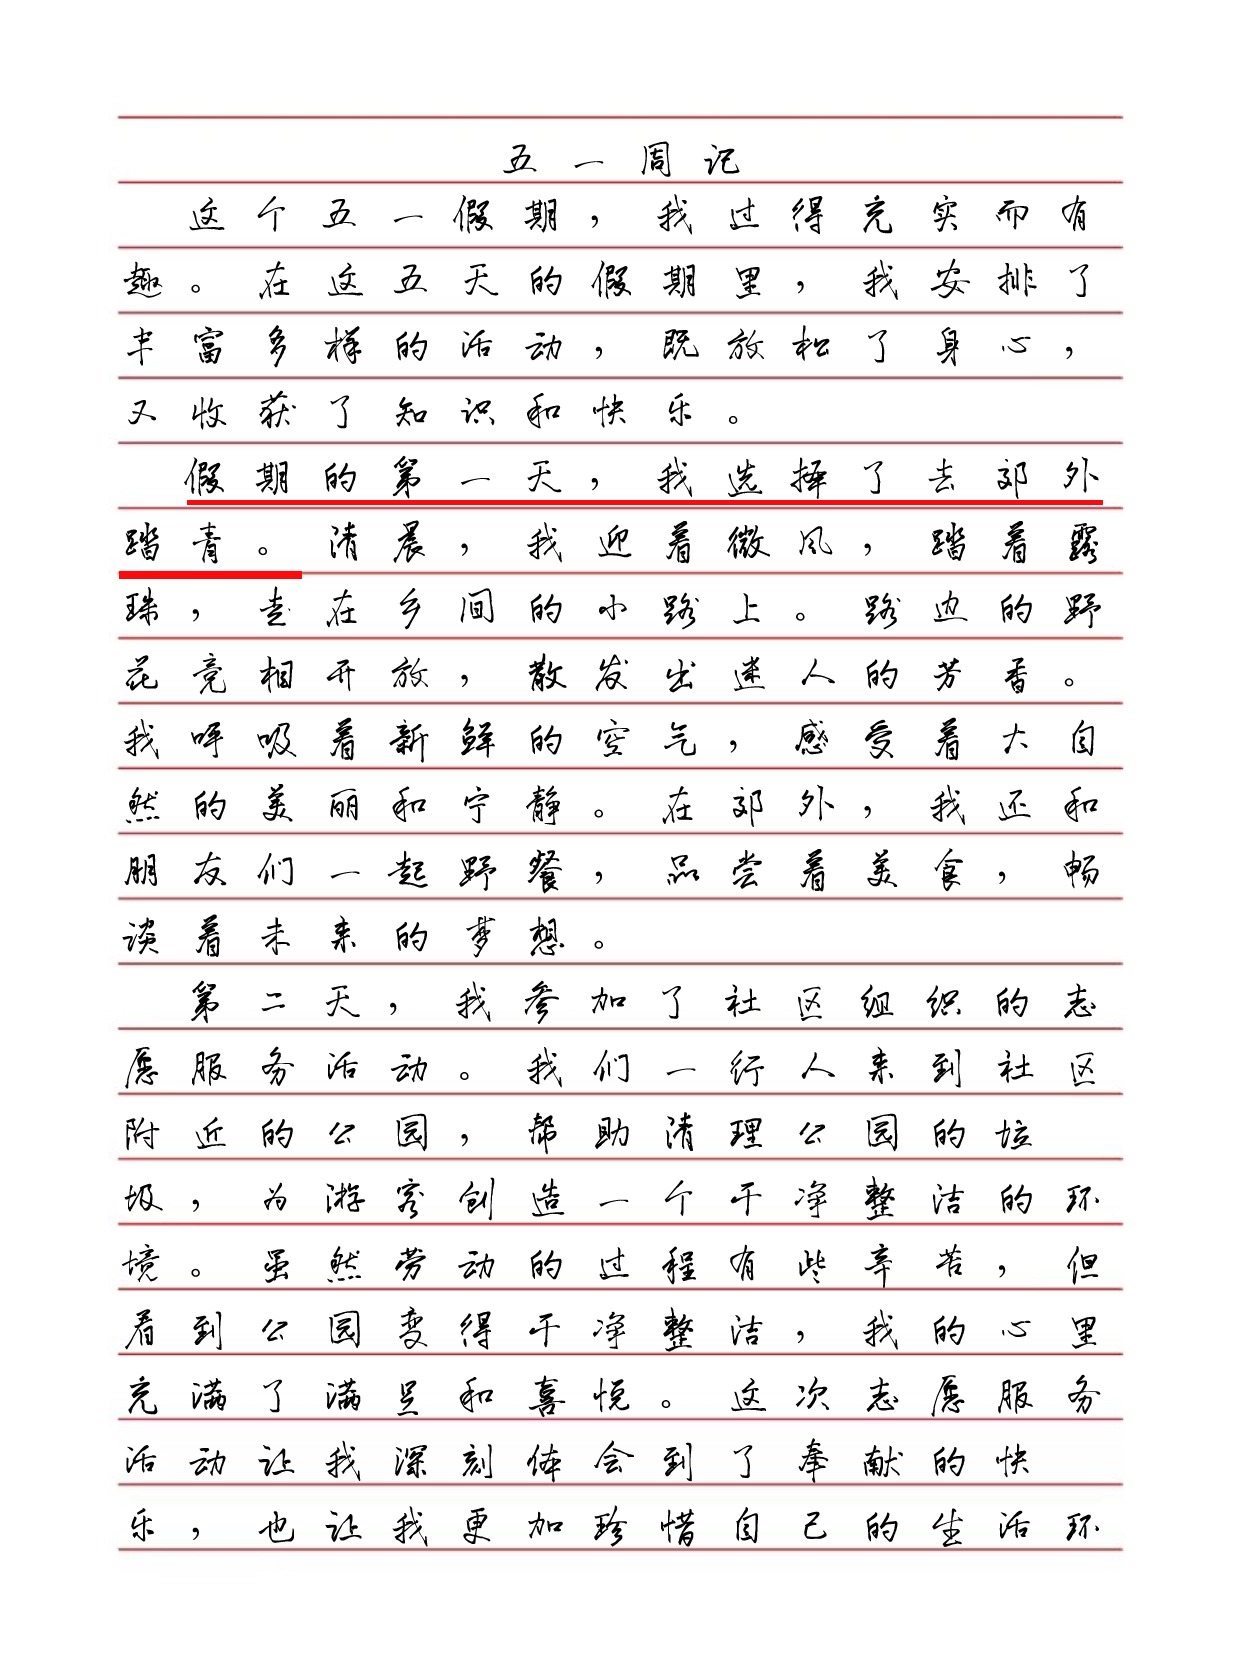 五一周记
这个五一假期，我过得充实而有
趣。在这五天的假期里，我安排了
丰富多样的活动，既放松了身心，
又收获了知识和快乐。
假期的第一天，我选择了去郊外
踏青。清晨，我迎着微风，踏着露
珠，走在乡间的小路上。路边的野
花竞相开放，散发出迷人的芳香。
我呼吸着新鲜的空气，感受着大自
然的美丽和宁静。在郊外，我还和
朋友们一起野餐，品尝着美食，畅
谈着未来的梦想。
第二天，我参加了社区组织的志
愿服务活动。我们一行人来到社区
附近的公园，帮助清理公园的垃
圾，为游客创造一个干净整洁的环
境。虽然劳动的过程有些辛苦，但
看到公园变得干净整洁，我的心里
充满了满足和喜悦。这次志愿服务
活动让我深刻体会到了奉献的快
乐，也让我更加珍惜自己的生活环